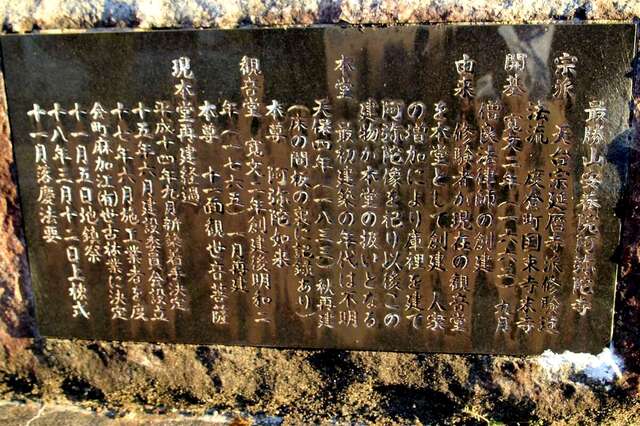 最勝山安養院阿弥陀寺
宗派 天台宗延暦寺派修験道
法流 度会町国束寺末寺
開基 寛文二年(一六六二)九月
僧良法律師の創建
由来 修験者が現在の観音堂
を本堂として創建 人家
の増加により庫裡を建て
阿弥陀像を祀り以後この
建物が本堂の扱いとなる
本堂 最初建築の年代は不明
天保四年(一八三三)秋再建
(床の間板の裏に記録あり)
本尊 阿弥陀如来
観音堂 寛文二年創建後明和二
年(一七六五)一月再建
本尊 十一面観世音菩薩
現本堂再建経過
平成十四年九月新築着手決定
十五年六月建設委員会設立
十七年六月施工業者を度
会町麻加江南世古林業に決定
十一月五日地鎮祭
十八年三月十二日上棟式
十一月落慶法要